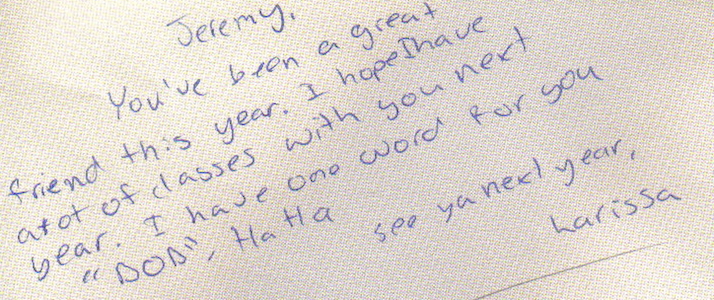 Jeremy,
You've been a great
friend this year. I hope I have
a lot of classes with you next
year. I have one word for you
"DOD", Ha Ha see ya next year,
Larissa